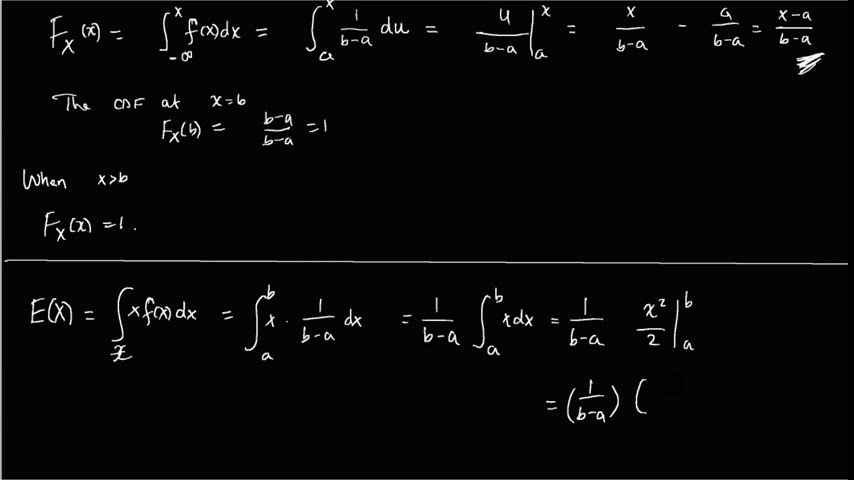 F_X(x) = ∫_{-∞}^{x} f(x)dx = ∫_{a}^{x} \frac{1}{b-a} du = \frac{u}{b-a} |_{a}^{x} = \frac{x}{b-a} - \frac{a}{b-a} = \frac{x-a}{b-a}
The CDF at x=b
F_X(b) = \frac{b-a}{b-a} = 1
When x>b
F_X(x) = 1.
E(X) = ∫_{x} x f(x) dx = ∫_{a}^{b} x · \frac{1}{b-a} dx = \frac{1}{b-a} ∫_{a}^{b} x dx = \frac{1}{b-a} \frac{x^2}{2} |_{a}^{b}
= (\frac{1}{b-a}) (